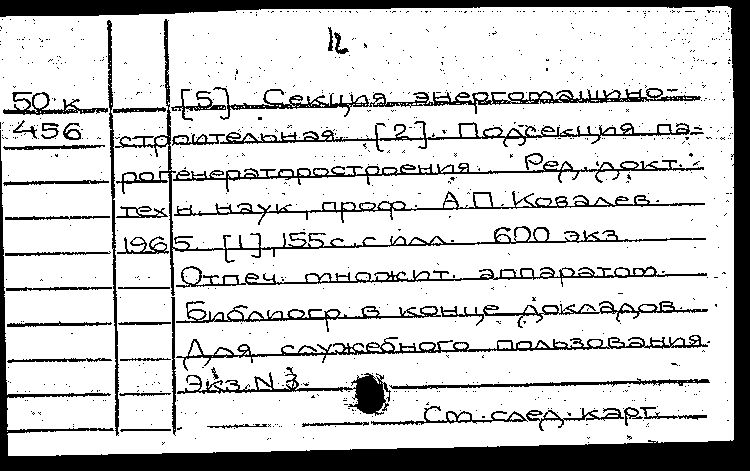 12.
50 к [5]. Секция энергомашино-
456 строительная. [2]. Подсекция па-
рогенераторостроения. Ред. докт.
техн. наук, проф. А.П. Ковалев.
1965. [1], 155 с. с илл. 600 экз.
Отпеч. множит. аппаратом.
Библиогр. в конце докладов.
Для служебного пользования.
Экз. N 3.
См. след. карт.